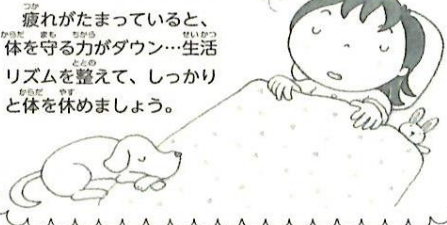 疲れがたまっていると、
体を守る力がダウン…生活
リズムを整えて、しっかり
と体を休めましょう。